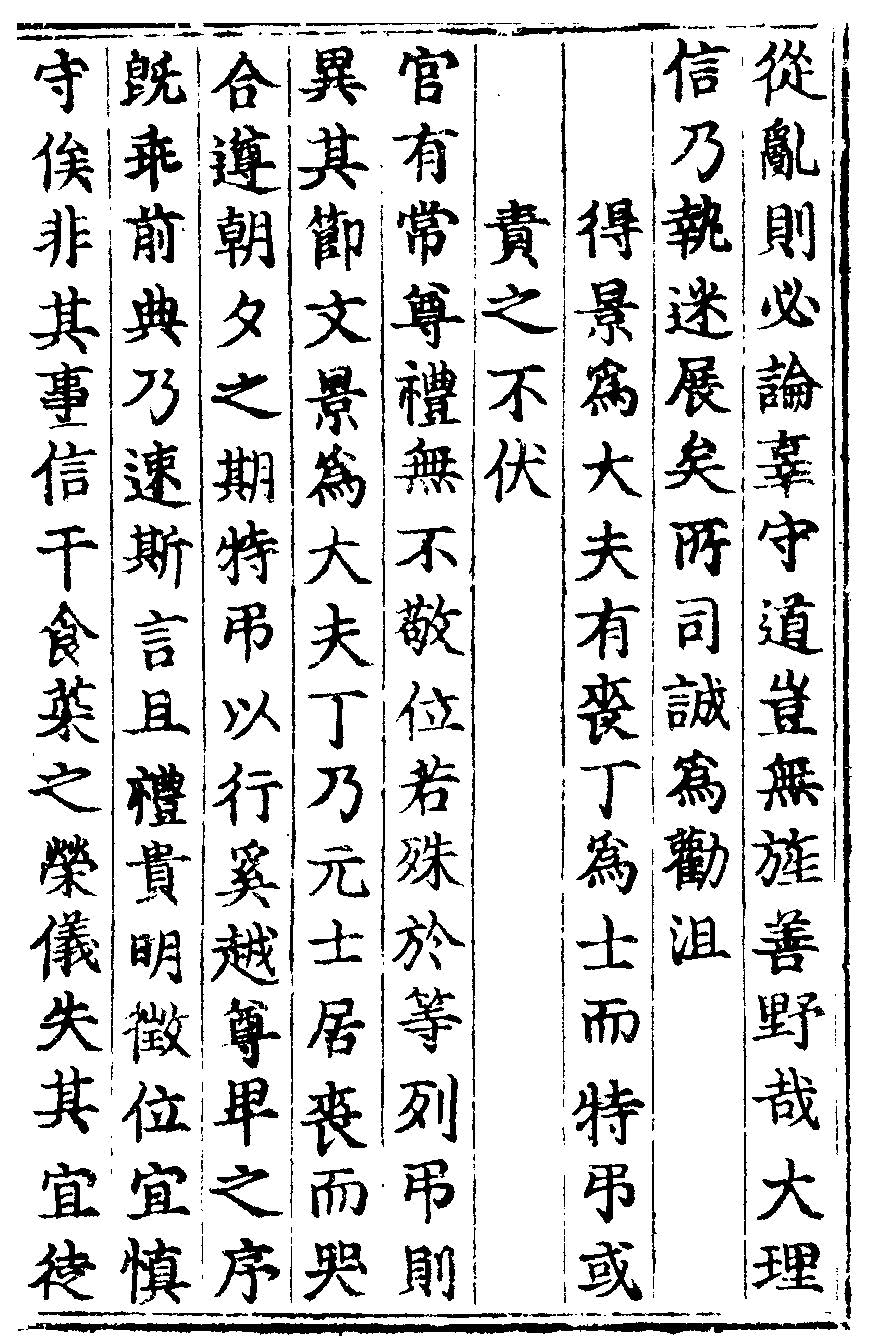 從亂則必論辜守道豈無旌善野哉大理
信乃執迷展矣所司誠爲勸沮
得景爲大夫有喪丁爲士而特弔或
責之不伏
官有常尊禮無不敬位若殊於等列弔則
異其節文景爲大夫丁乃元士居喪而哭
合遵朝夕之期特弔以行奚越尊卑之序
既乖前典乃速斯言且禮貴明徵位宜慎
守俟非其事信干食菜之榮儀失其宜徒